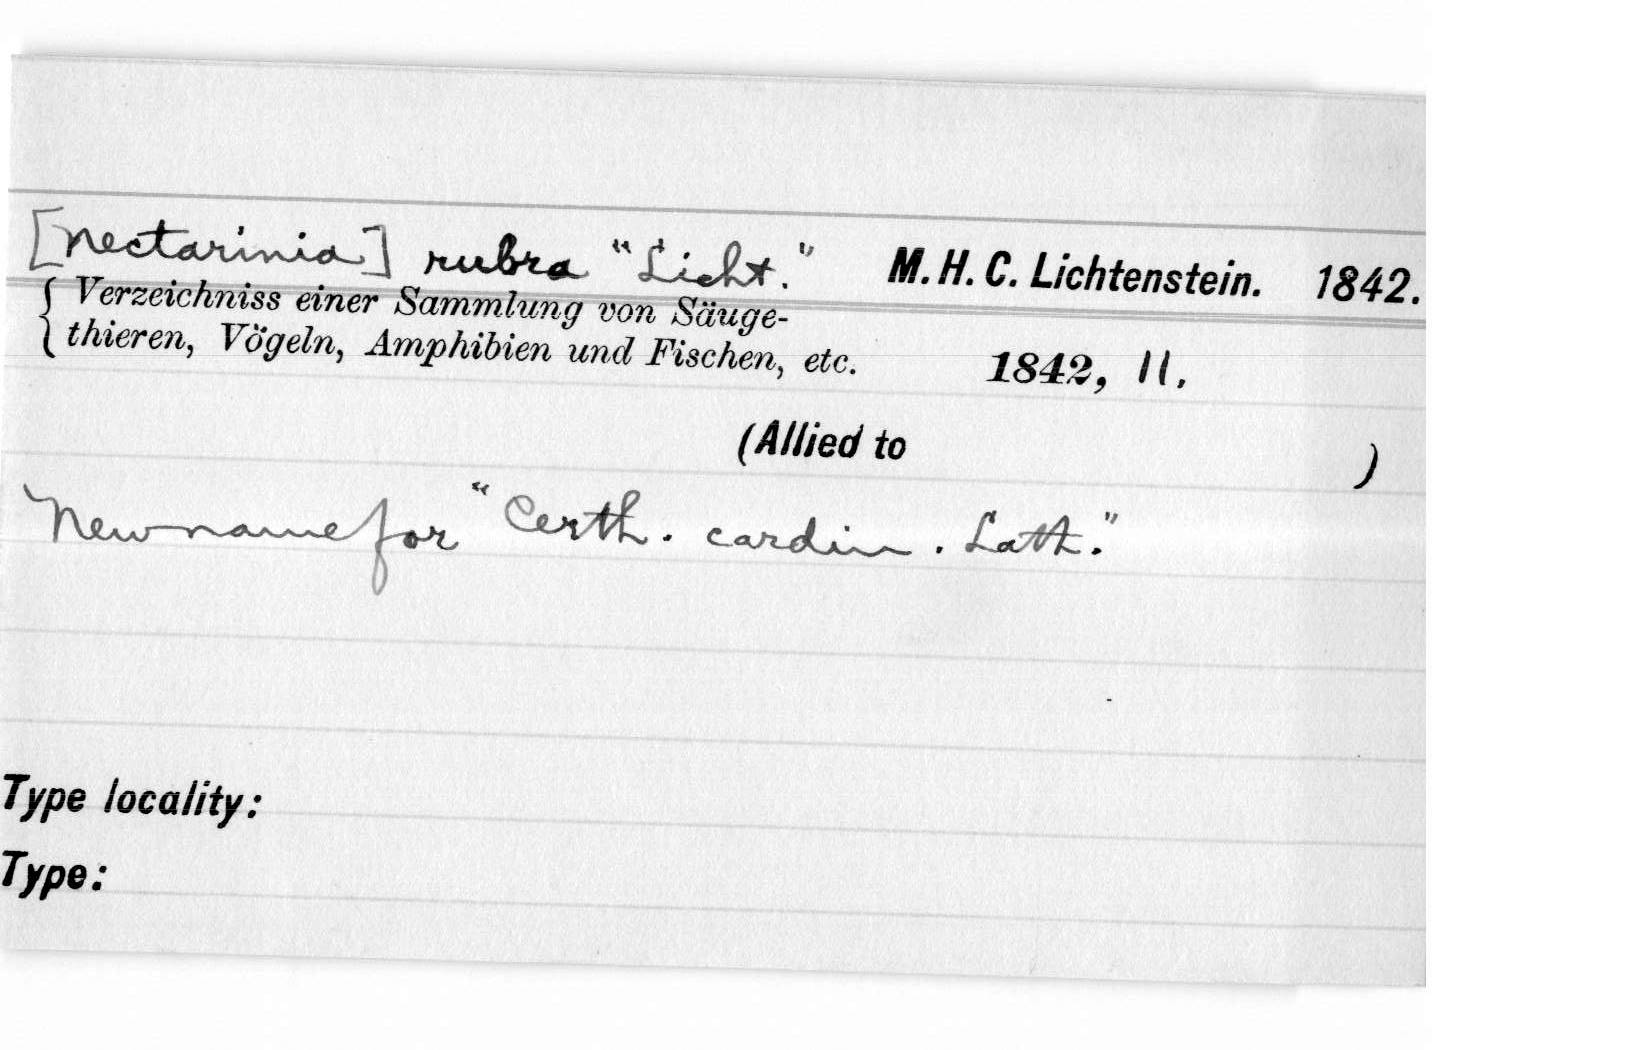 [Nectarinia] rubra "Licht." M. H. C. Lichtenstein. 1842.
{ Verzeichniss einer Sammlung von Säuge-
thieren, Vögeln, Amphibien und Fischen, etc. 1842, 11.
(Allied to )
New name for "Certh. cardin. Lath."
Type locality:
Type: